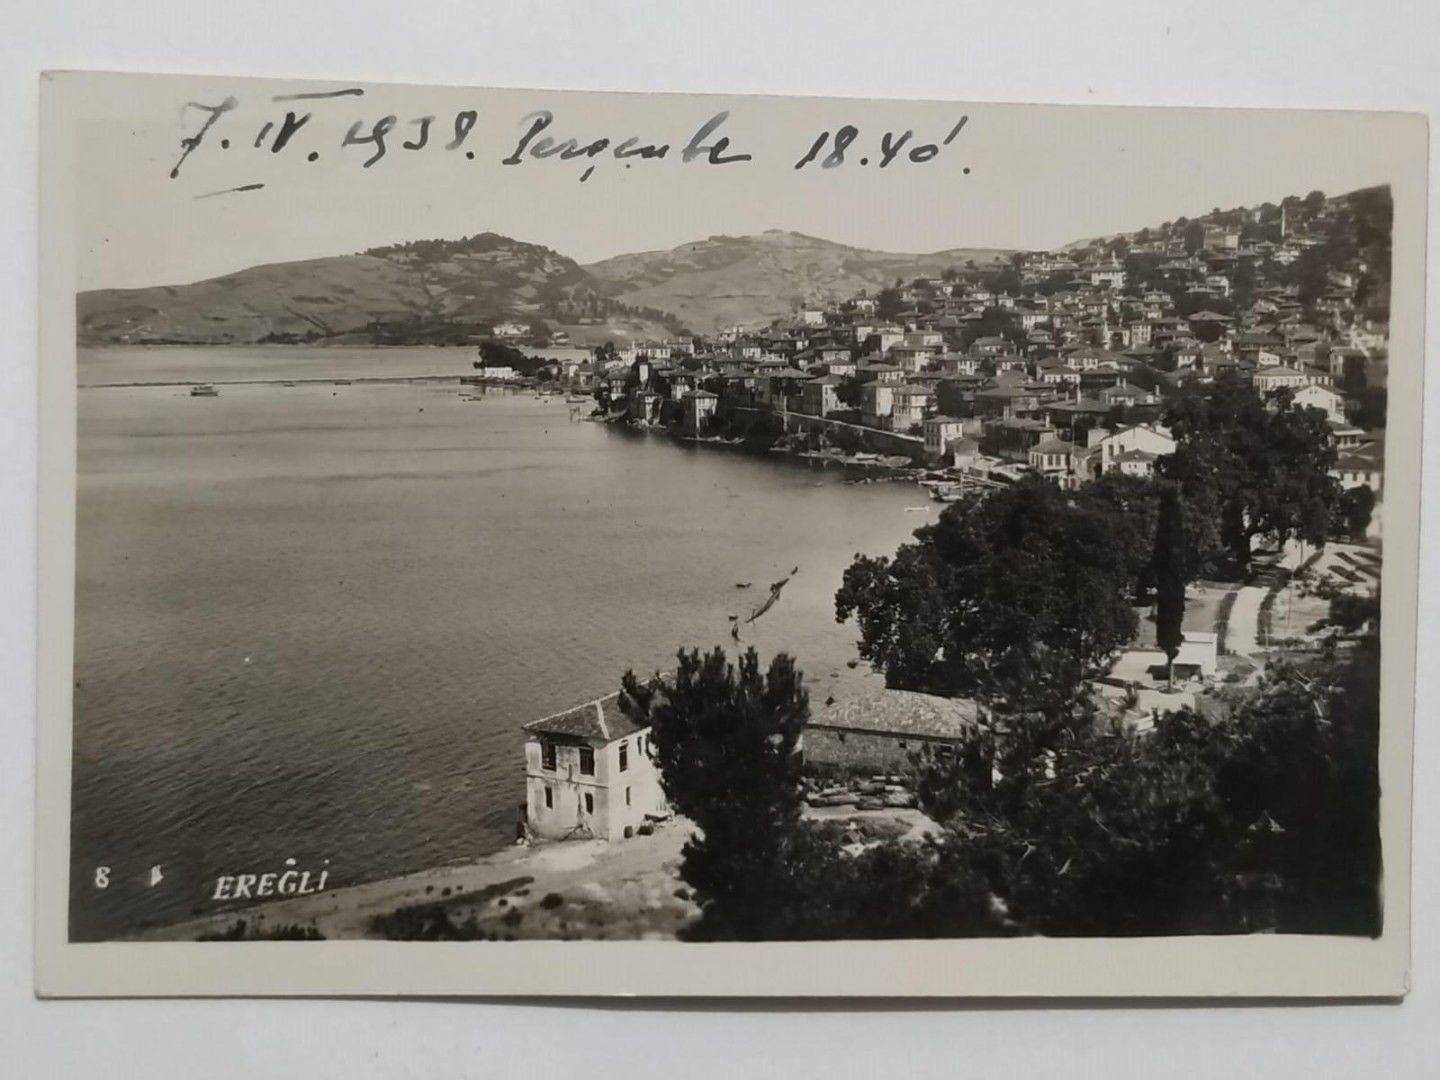 7. IV. 1938. Perşembe 18.40'.
8 EREĞLİ